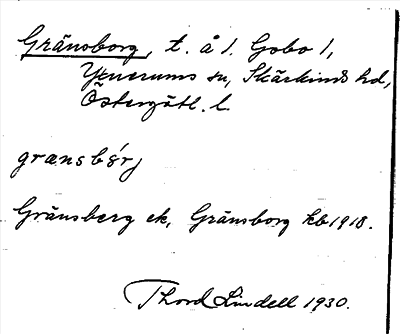 Gränsborg, t. å 1. Gobo 1,
Yxnerums sn, Skärkinds hd,
Östergötl. l.
grænsbærj
Gränsberg ek, Gränsborg kb 1918.
Thord Lindell 1930.